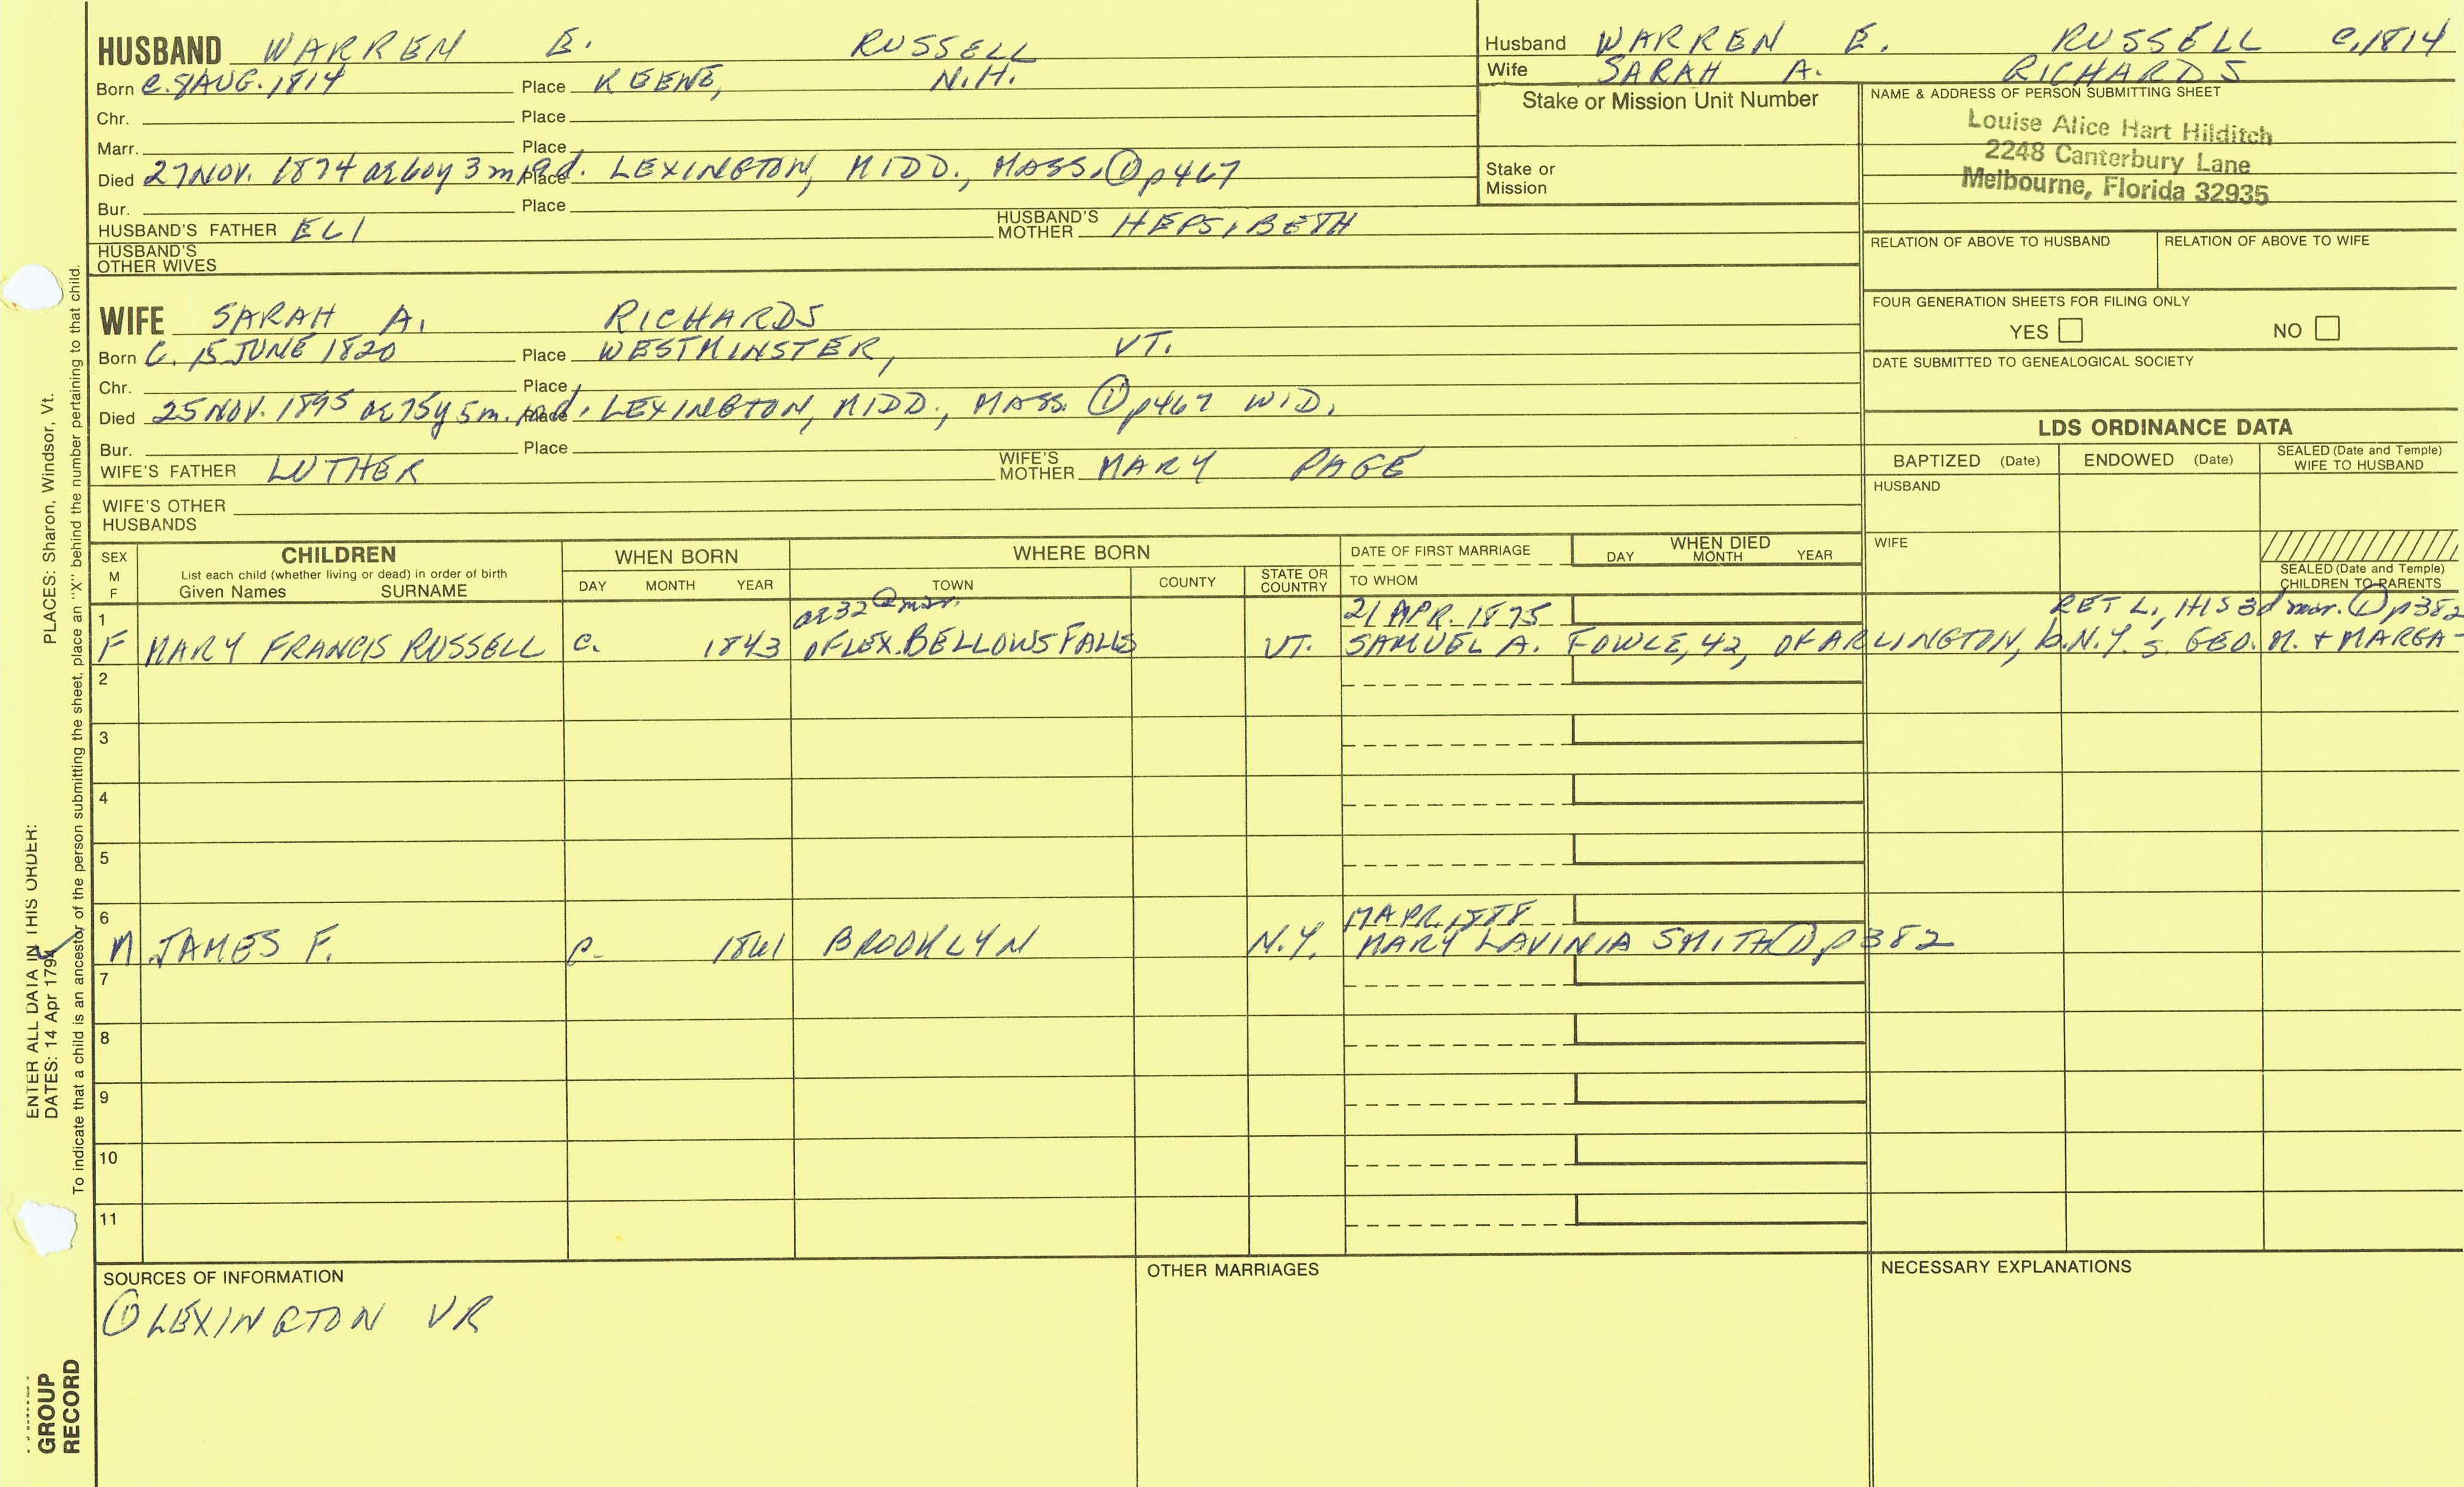 HUSBAND WARREN E. RUSSELL
Born C. 8 AUG. 1814 Place KEENE, N.H.
Chr. Place
Marr. Place
Died 27 NOV. 1874 ae 60y 3m 19d. Place LEXINGTON, MIDD., MASS. ① p467
Bur. Place
HUSBAND'S FATHER ELI HUSBAND'S MOTHER HEPSIBETH
HUSBAND'S OTHER WIVES
WIFE SARAH A. RICHARDS
Born C. 15 JUNE 1820 Place WESTMINSTER, VT.
Chr. Place
Died 25 NOV. 1895 ae 75y 5m. Place LEXINGTON, MIDD., MASS. ① p467 WID.
Bur. Place
WIFE'S FATHER LUTHER WIFE'S MOTHER MARY PAGE
WIFE'S OTHER HUSBANDS
Husband WARREN E. RUSSELL C. 1814
Wife SARAH A. RICHARDS
Stake or Mission Unit Number
Stake or
Mission
NAME & ADDRESS OF PERSON SUBMITTING SHEET
Louise Alice Hart Hilditch
2248 Canterbury Lane
Melbourne, Florida 32935
RELATION OF ABOVE TO HUSBAND RELATION OF ABOVE TO WIFE
FOUR GENERATION SHEETS FOR FILING ONLY
YES NO
DATE SUBMITTED TO GENEALOGICAL SOCIETY
LDS ORDINANCE DATA
BAPTIZED (Date) ENDOWED (Date) SEALED (Date and Temple) WIFE TO HUSBAND
HUSBAND
WIFE
SEALED (Date and Temple) CHILDREN TO PARENTS
SEX M F CHILDREN WHEN BORN WHERE BORN DATE OF FIRST MARRIAGE WHEN DIED
List each child (whether living or dead) in order of birth DAY MONTH YEAR
Given Names SURNAME DAY MONTH YEAR TOWN COUNTY STATE OR COUNTRY TO WHOM
1 ae 32 @ mar. 21 APR. 1875 RET L., HIS 3d mar. ① p382
F MARY FRANCIS RUSSELL C. 1843 OF LEX. BELLOWS FALLS VT. SAMUEL A. FOWLE, 42, OF ARLINGTON, b. N.Y. s. GEO. M. + MARGA-
2
3
4
5
6 17 APR. 1888
M JAMES F. C. 1861 BROOKLYN N.Y. MARY LAVINIA SMITH ① p382
7
8
9
10
11
SOURCES OF INFORMATION
① LEXINGTON VR
OTHER MARRIAGES
NECESSARY EXPLANATIONS
PLACES: Sharon, Windsor, Vt.
To indicate that a child is an ancestor of the person submitting the sheet, place an "X" behind the number pertaining to that child.
ENTER ALL DATA IN THIS ORDER:
DATES: 14 Apr 1794
GROUP
RECORD